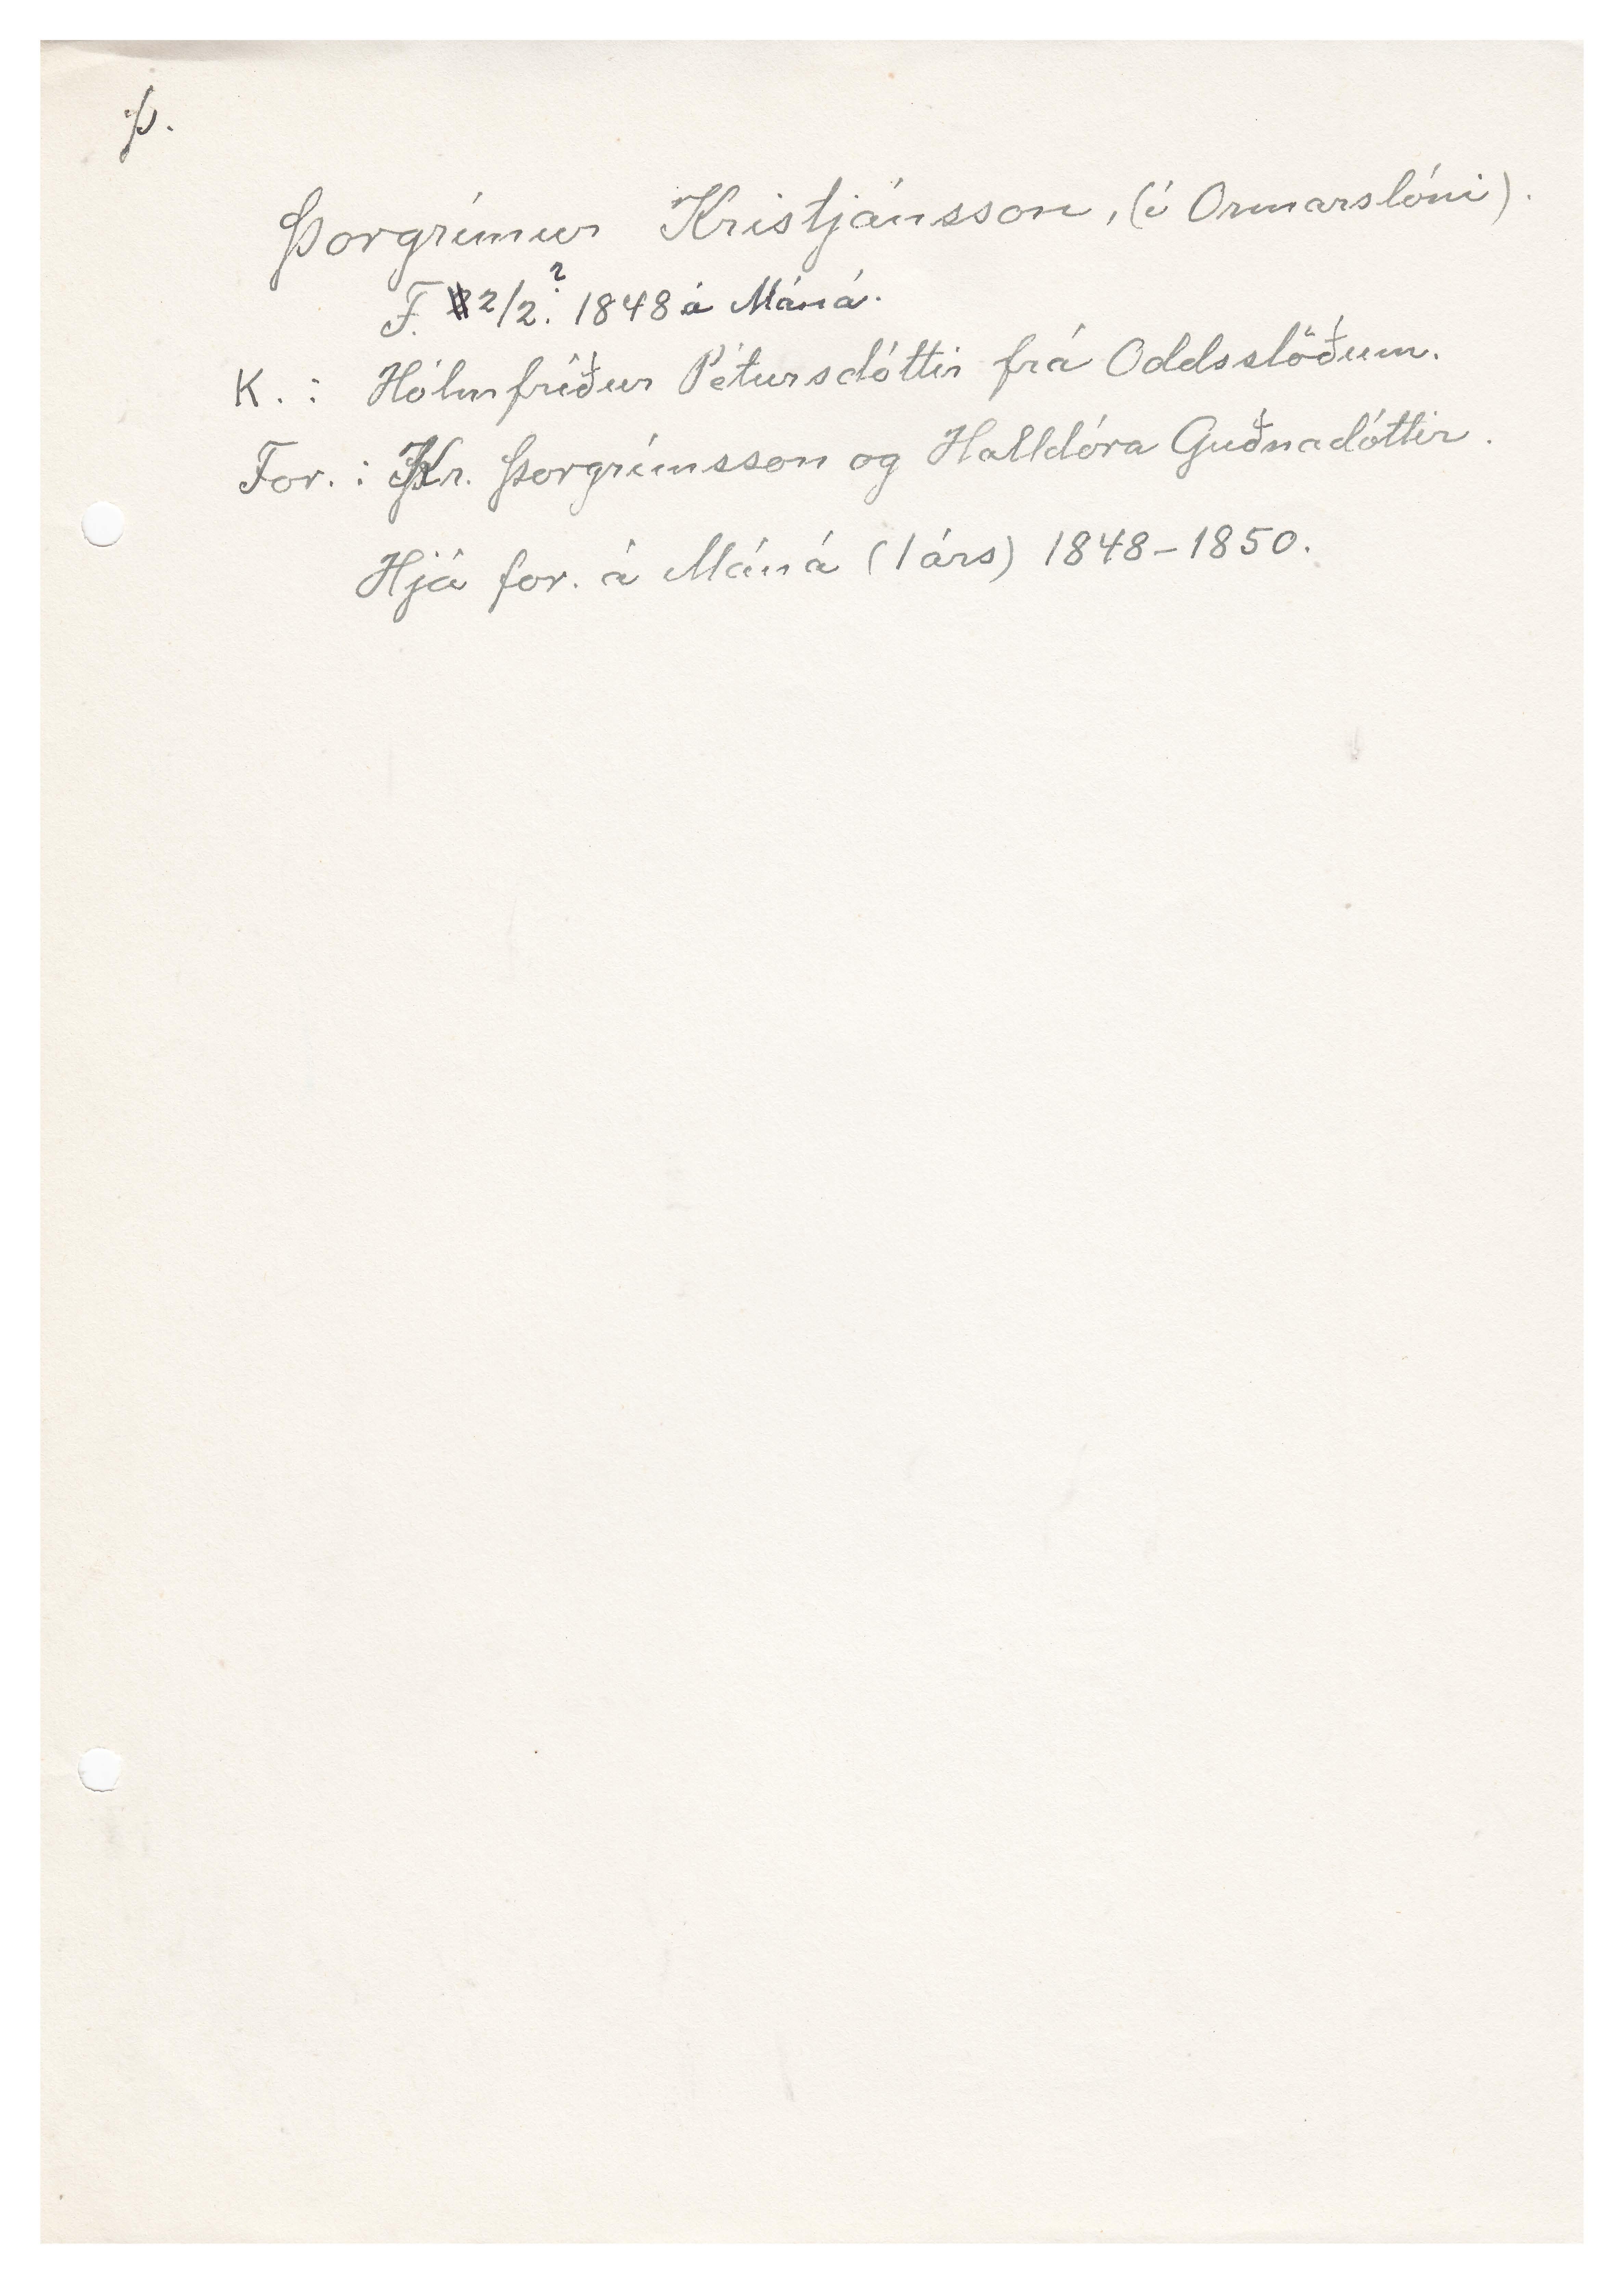 Þ.
Þorgrímur Kristjánsson, (í Ormarslóni).
F. 2/2.? 1848 á Máná.
K. : Hólmfríður Pétursdóttir frá Oddsslöðum.
For. : Kr. Þorgrímsson og Halldóra Guðnadóttir.
Hjá for. á Máná (1 árs) 1848-1850.